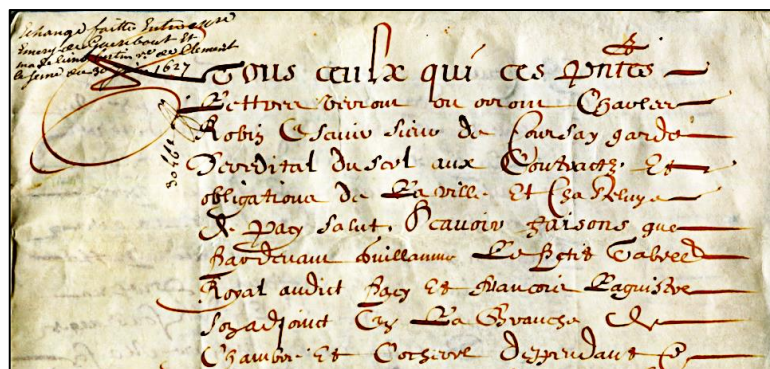 Echange faitte Entre
Emery de Gueribout Et
de Clement
le 30 1627
Tous ceulx qui ces pntes
Lettres verront ou orront Charles
Robin Escuier sieur de Coursay garde
heredital du scel aux Contractz Et
obligations de La ville Et Chastelnye
de Pacy salut. Scavoir faisons que
Pardevant Guillaume Le Petit Tabvel
Royal audict Pacy Et Francois Laguistre
son adjoinct La Branche de
Chambre Et Cocherel deppendant